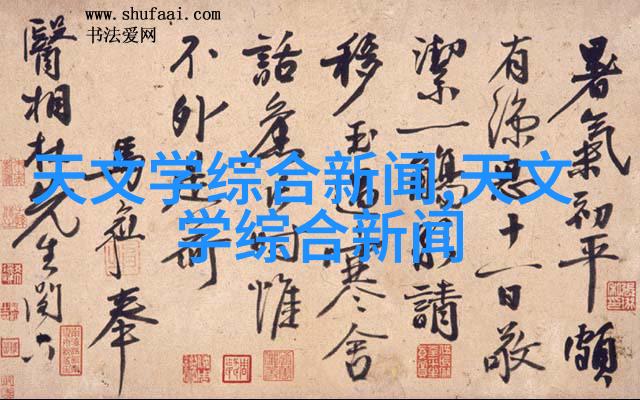 www.shufaai.com
书法爱网
天文学综合新闻,天文
学综合新闻
暑氣初平頗
有涼思十一日敬
潔一觴請
移玉過寒舍
話舊惟
不外是荷
馬愈奉
醫相杜先生閣下